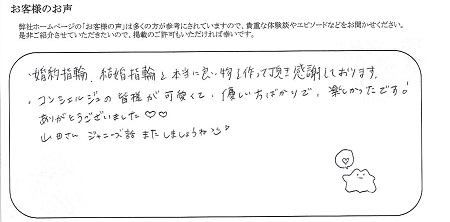 お客様のお声
弊社ホームページの「お客様の声」は多くの方が参考にされていますので、貴重な体験談やエピソードなどをお聞かせください。
是非ご紹介させていただきたいので、掲載のご許可もいただければ幸いです。
・婚約指輪、結婚指輪と本当に良い物を作って頂き感謝しております。
・コンシェルジュの皆様が可愛くて、優しい方ばかりで、楽しかったです!
ありがとうございました♡♡
山田さん ジャニーズ話 またしましょうね